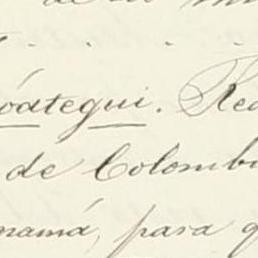 de
óategui. Re
de Colombi
namá, para q